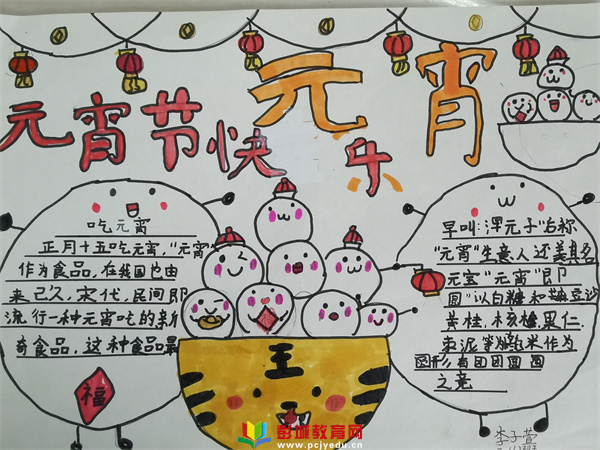 元宵
元宵节快乐
吃元宵
正月十五吃元宵,“元宵”
作为食品,在我国也由
来已久,宋代,民间即
流行一种元宵吃的新
奇食品,这种食品最
福
早叫:浑元子”后称
“元宵”生意人还美其名
元宝“元宵”即
圆”以白糖和
黄桂,核桃,果仁.
枣泥等 米作为
圆形有团团圆圆
之意
王
李子萱
彭城教育网
www.pcjyedu.cn